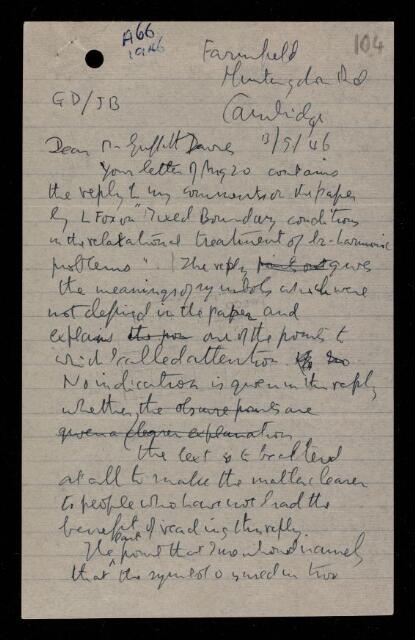 A66
1946
104
Farmfield
Huntingdon Rd
Cambridge
GD/JB
13/9/46
Dear Mr Griffith Davies
Your letter of Aug 20 contains
the reply to my comments on the paper
by L Fox on "Mixed Boundary conditions
in the relaxational treatment of bi-harmonic
problems". The reply points out gives
the meanings of symbols which were
not defined in the paper and
explains one of the points to
which I called attention.
No indication is given in the reply
whether the obscure points are
given a clearer explanation
the text is to be altered
at all to make the matter clearer
to people who have not had the
benefit of reading the reply.
The point that I mentioned namely
that the symbol o is used in two